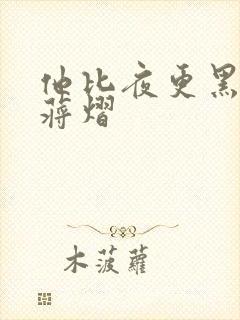 他比夜更黑
蒋熠
木菠萝